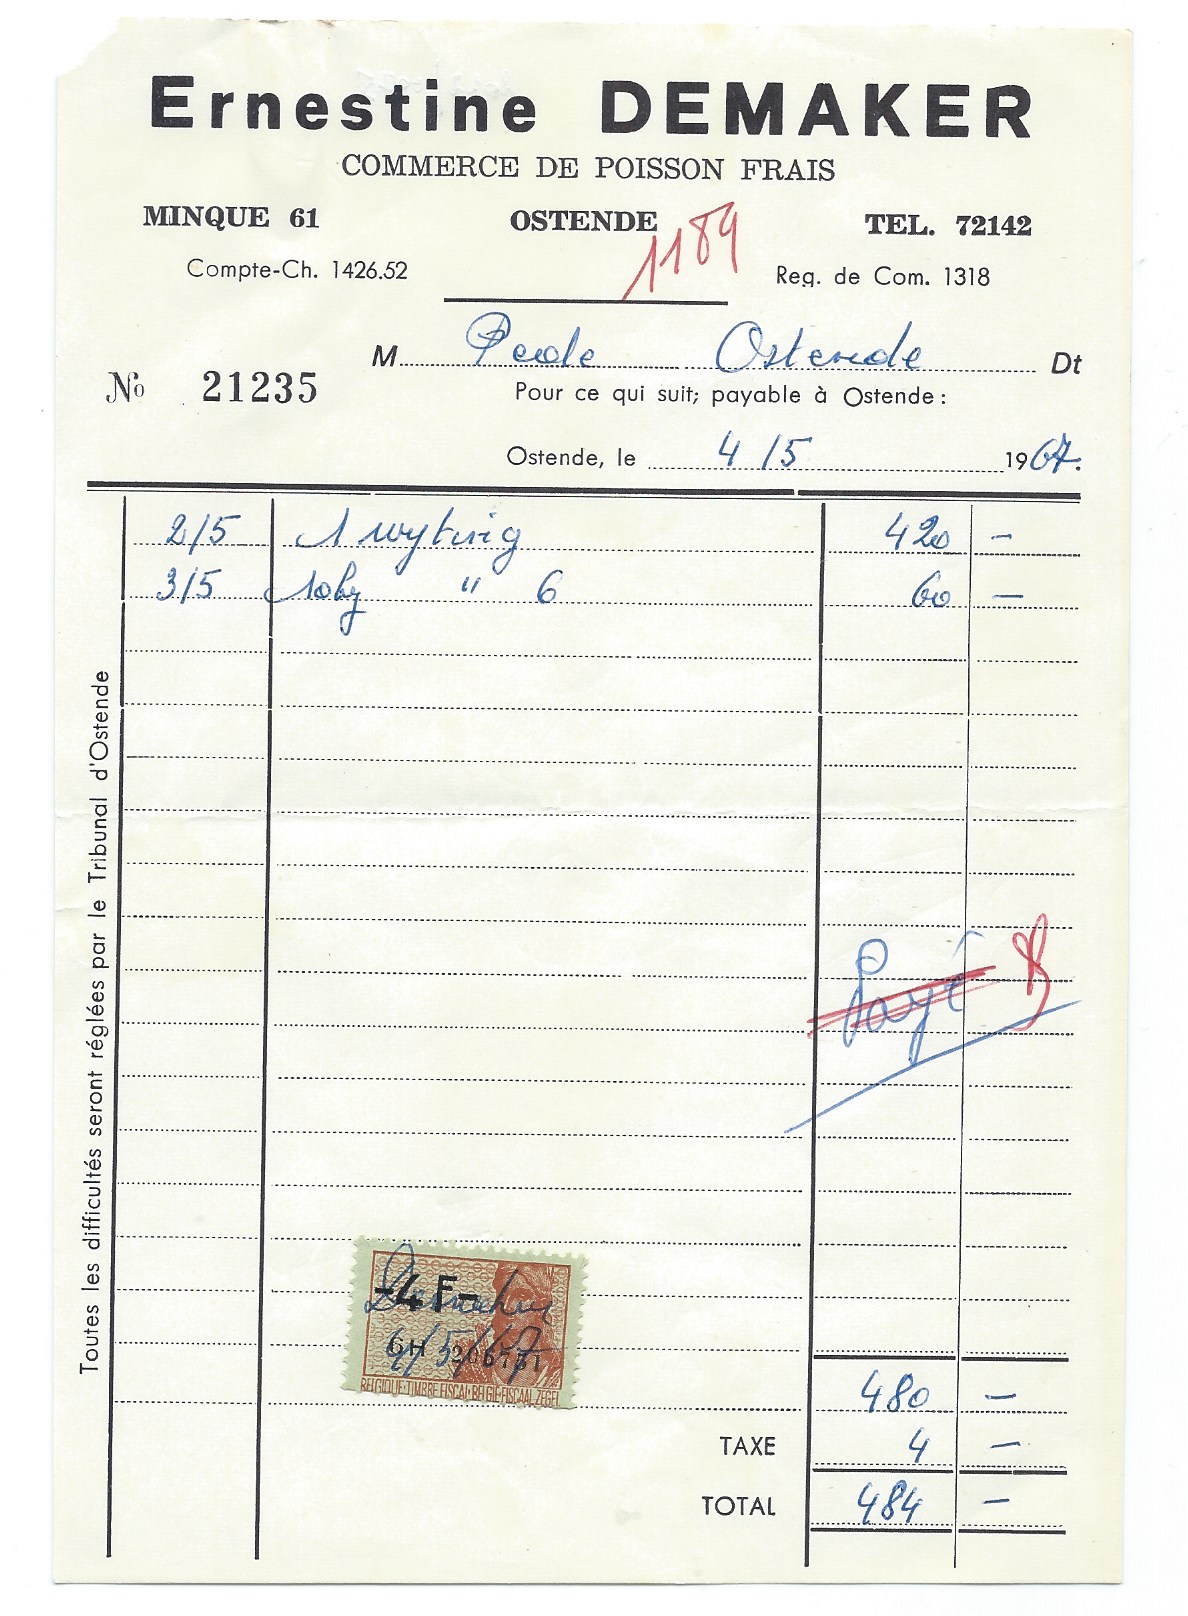 Ernestine DEMAKER
COMMERCE DE POISSON FRAIS
MINQUE 61 OSTENDE TEL. 72142
1189
Compte-Ch. 1426.52 Reg. de Com. 1318
M Ostende Dt
Nº 21235
Pour ce qui suit; payable à Ostende:
Ostende, le 4/5 1967.
2/5 1 wyting 420 -
3/5 10kg " 6 60 -
Toutes les difficultés seront réglées par le Tribunal d'Ostende
Payé
-4 F-
4/5/67
BELGIQUE·TIMBRE FISCAL·BELGIË·FISCAAL ZEGEL
480 -
TAXE 4 -
TOTAL 484 -